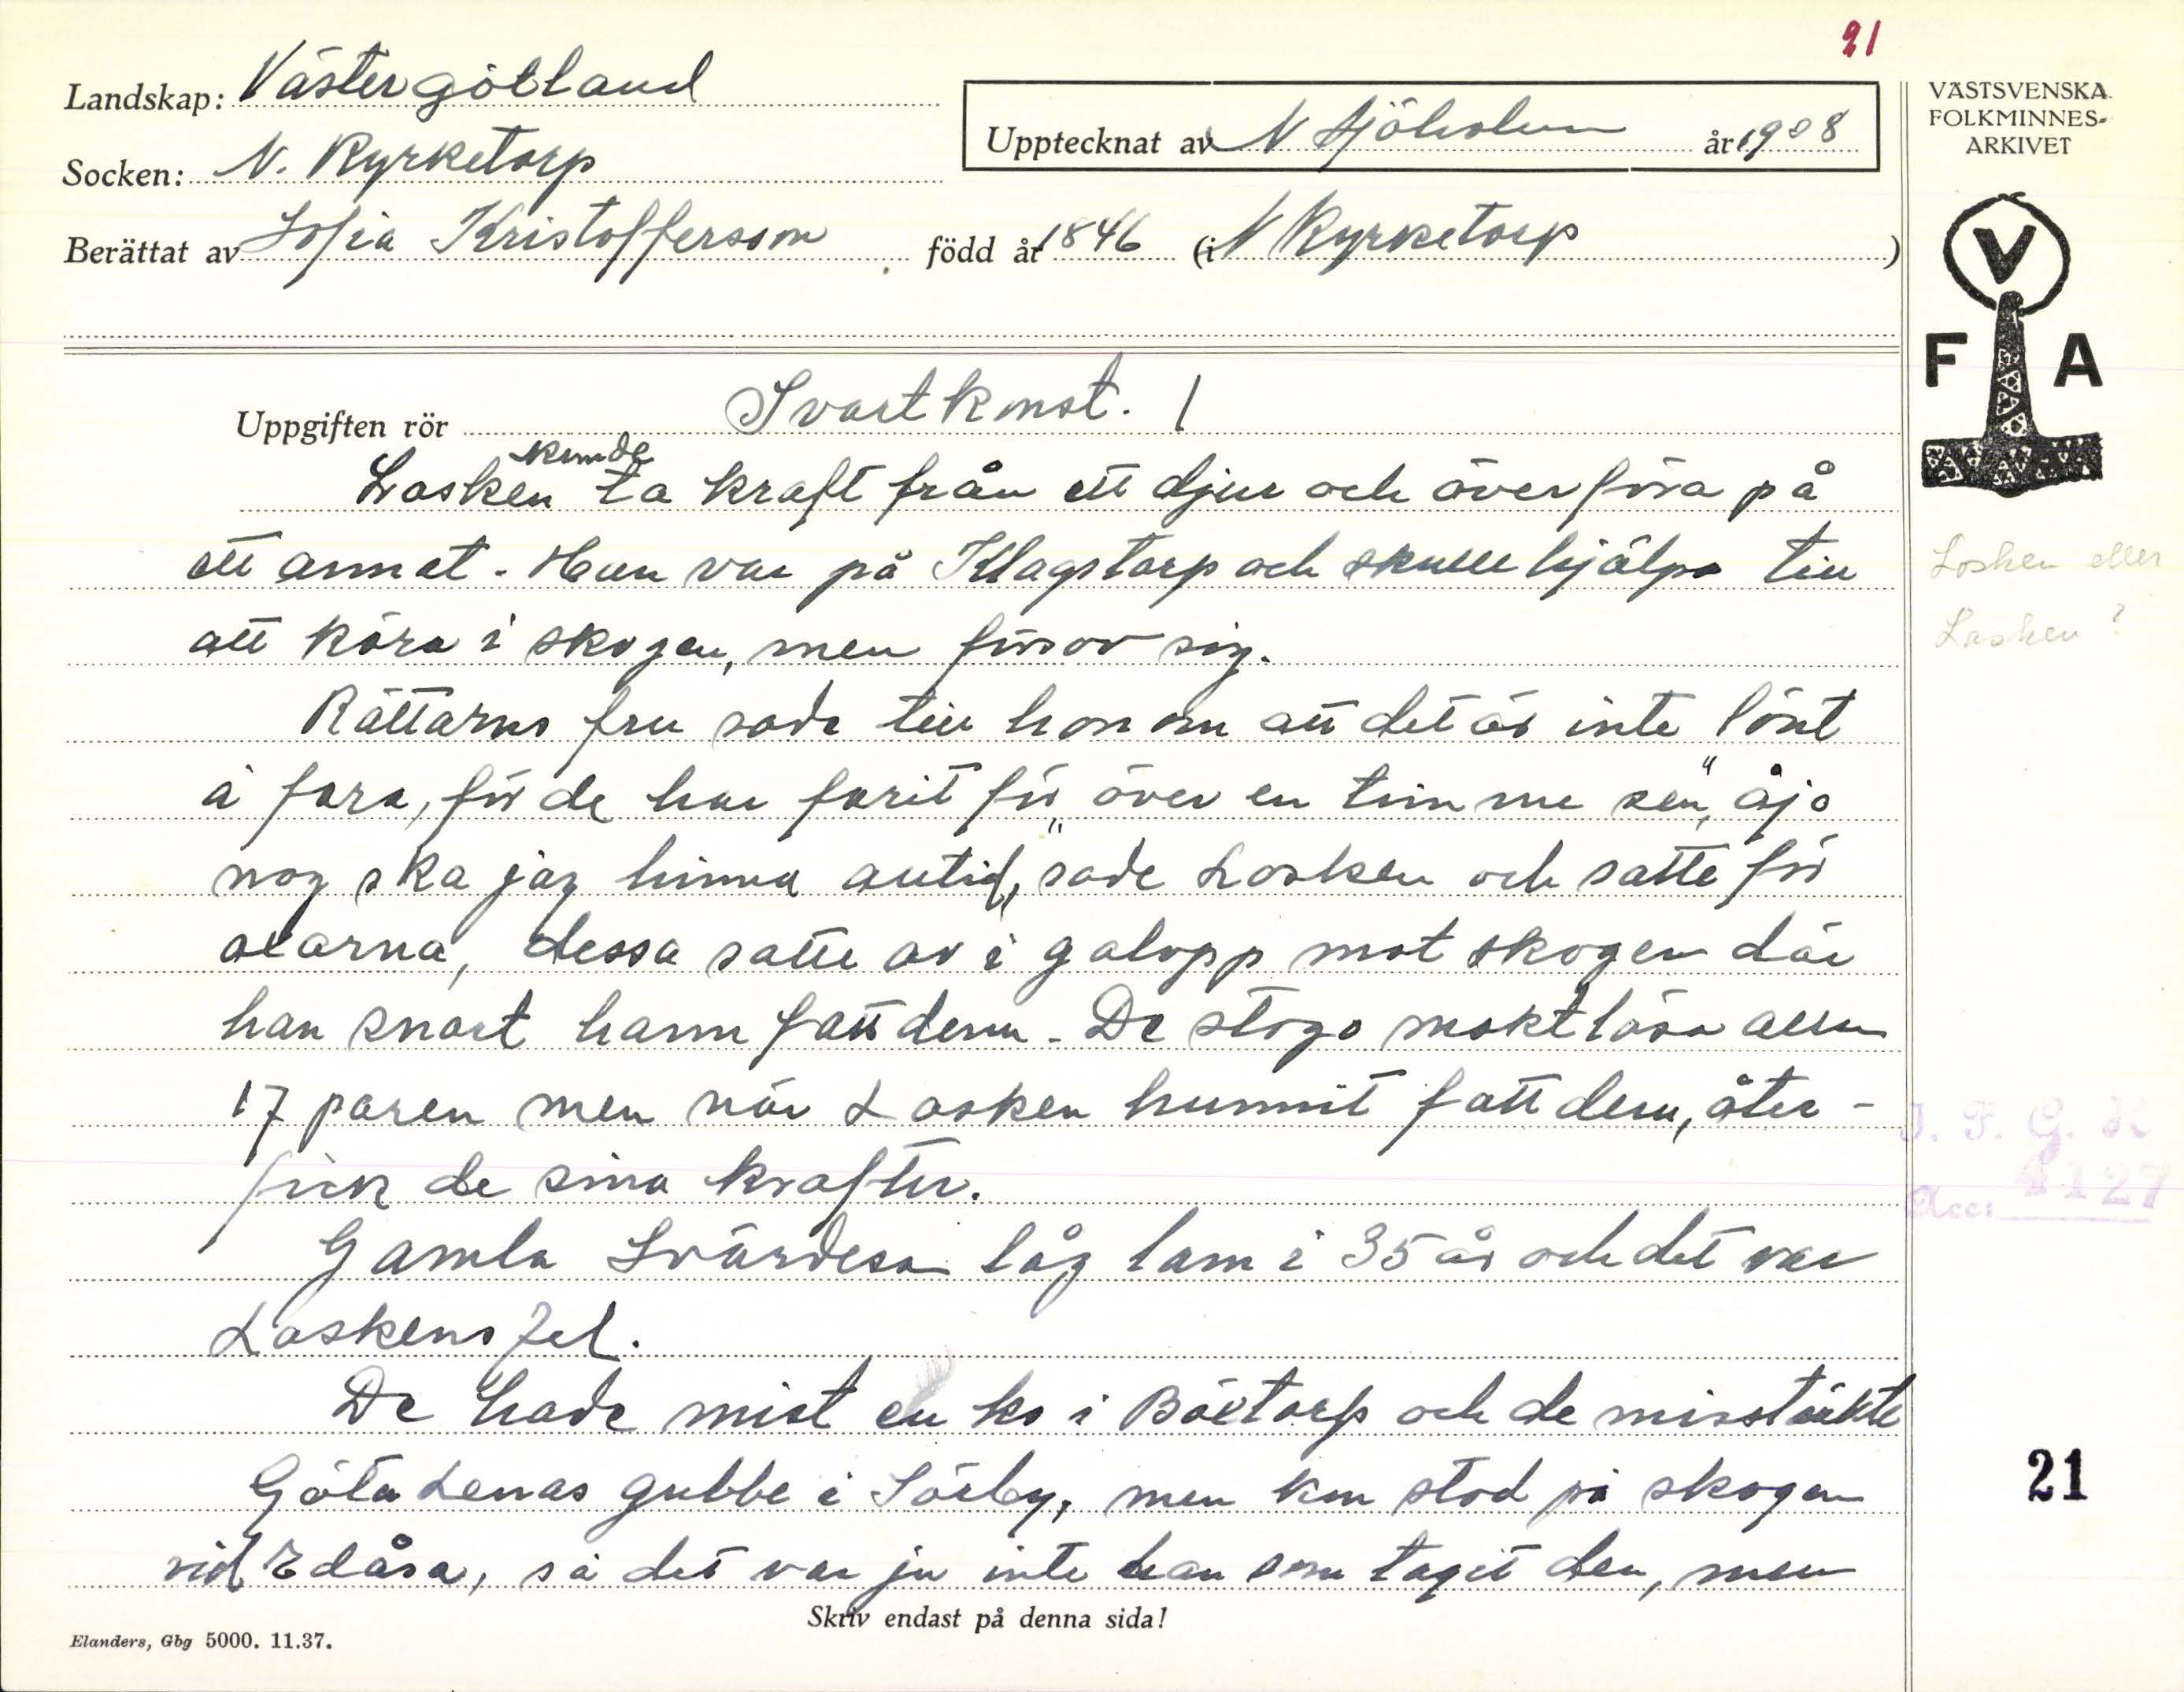 21
Landskap: Västergötland
Upptecknat av N Sjöholm år 1908
VÄSTSVENSKA
FOLKMINNES-
ARKIVET
Socken: N. Kyrketorp
Berättat av Sofia Kristoffersson född år 1846 (i N Kyrketorp)
V
F A
Uppgiften rör Svartkonst. 1
kunde
Lasken ta kraft från ett djur och överföra på
ett annat. Han var på Klagstorp och skulle hjälpa till
Losken eller
att köra i skogen, men försov sig.
Lasken?
Rättarns fru sade till honom att det är inte lönt
å fara, för de har farit för över en timme sen", åjo
nog ska jag hinna antid," sade Lasken och satte för
oxarna, dessa satte av i galopp mot skogen där
han snart hann fatt dem. De stogo maktlösa alla
17 paren men när Lasken hunnit fatt dem, åter-
J. F. G. K
fick de sina krafter.
Acc: 4127
Gamla låg lam i 35 år och det var
Laskens fel.
De hade mist en ko i Böxtorp och de misstänkte
Göta Lenas gubbe i Sörby, men kon stod på skogen
21
vid Edåsa, så det var ju inte han som tagit den, men
Skriv endast på denna sida!
Elanders, Gbg 5000. 11.37.